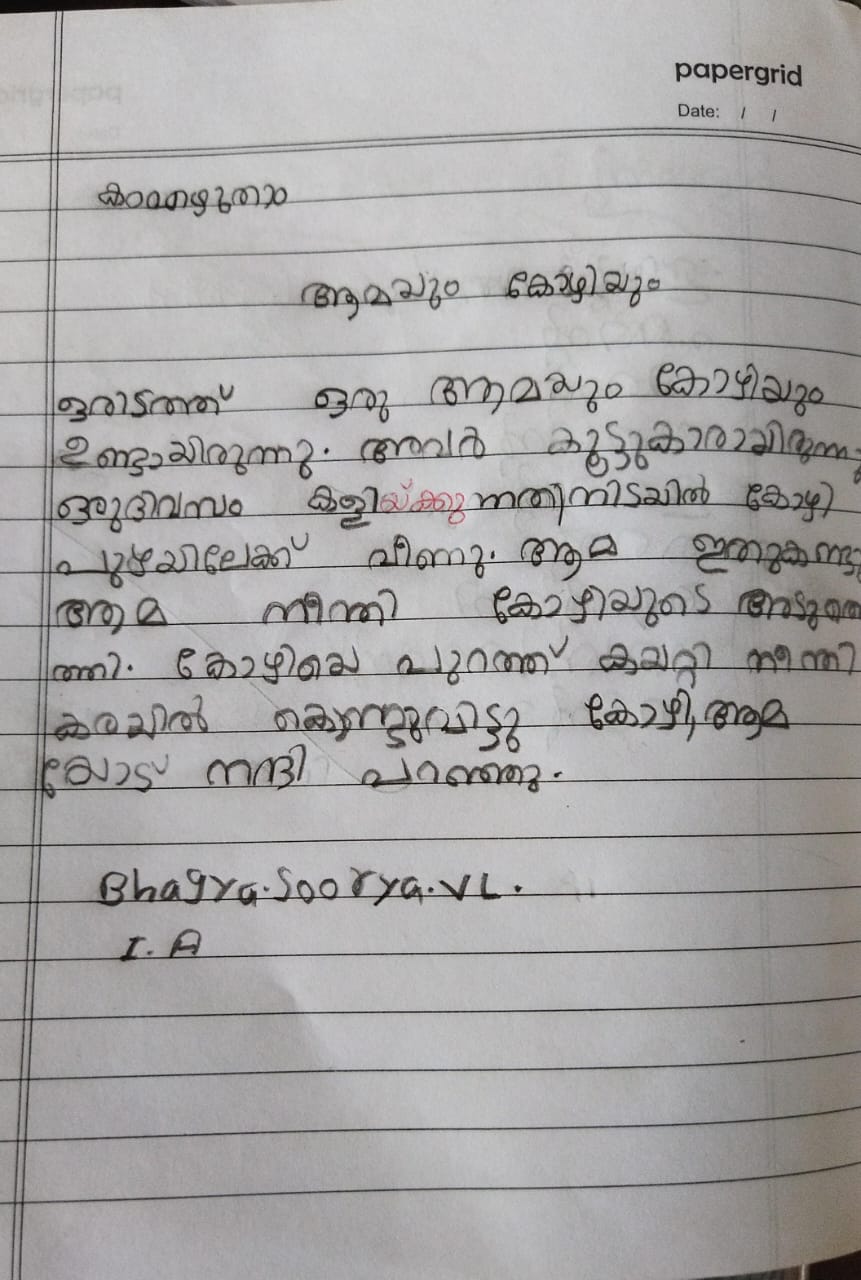 papergrid
Date: / /
കഥഎഴുതാം
ആമയും കോഴിയും
ഒരിടത്ത് ഒരു ആമയും കോഴിയും
ഉണ്ടായിരുന്നു. അവർ കൂട്ടുകാരായിരുന്നു
ഒരുദിവസം കളിയ്ക്കുന്നതിനിടയിൽ കോഴി
പുഴയിലേക്ക് വീണു. ആമ ഇതുകണ്ടു
ആമ നീന്തി കോഴിയുടെ അടുത്തെ
ത്തി. കോഴിയെ പുറത്ത് കയറ്റി നീന്തി
കരയിൽ കൊണ്ടുവിട്ടു കോഴി, ആമ
യോട് നന്ദി പറഞ്ഞു.
Bhagya.Soorya.VL.
I. A